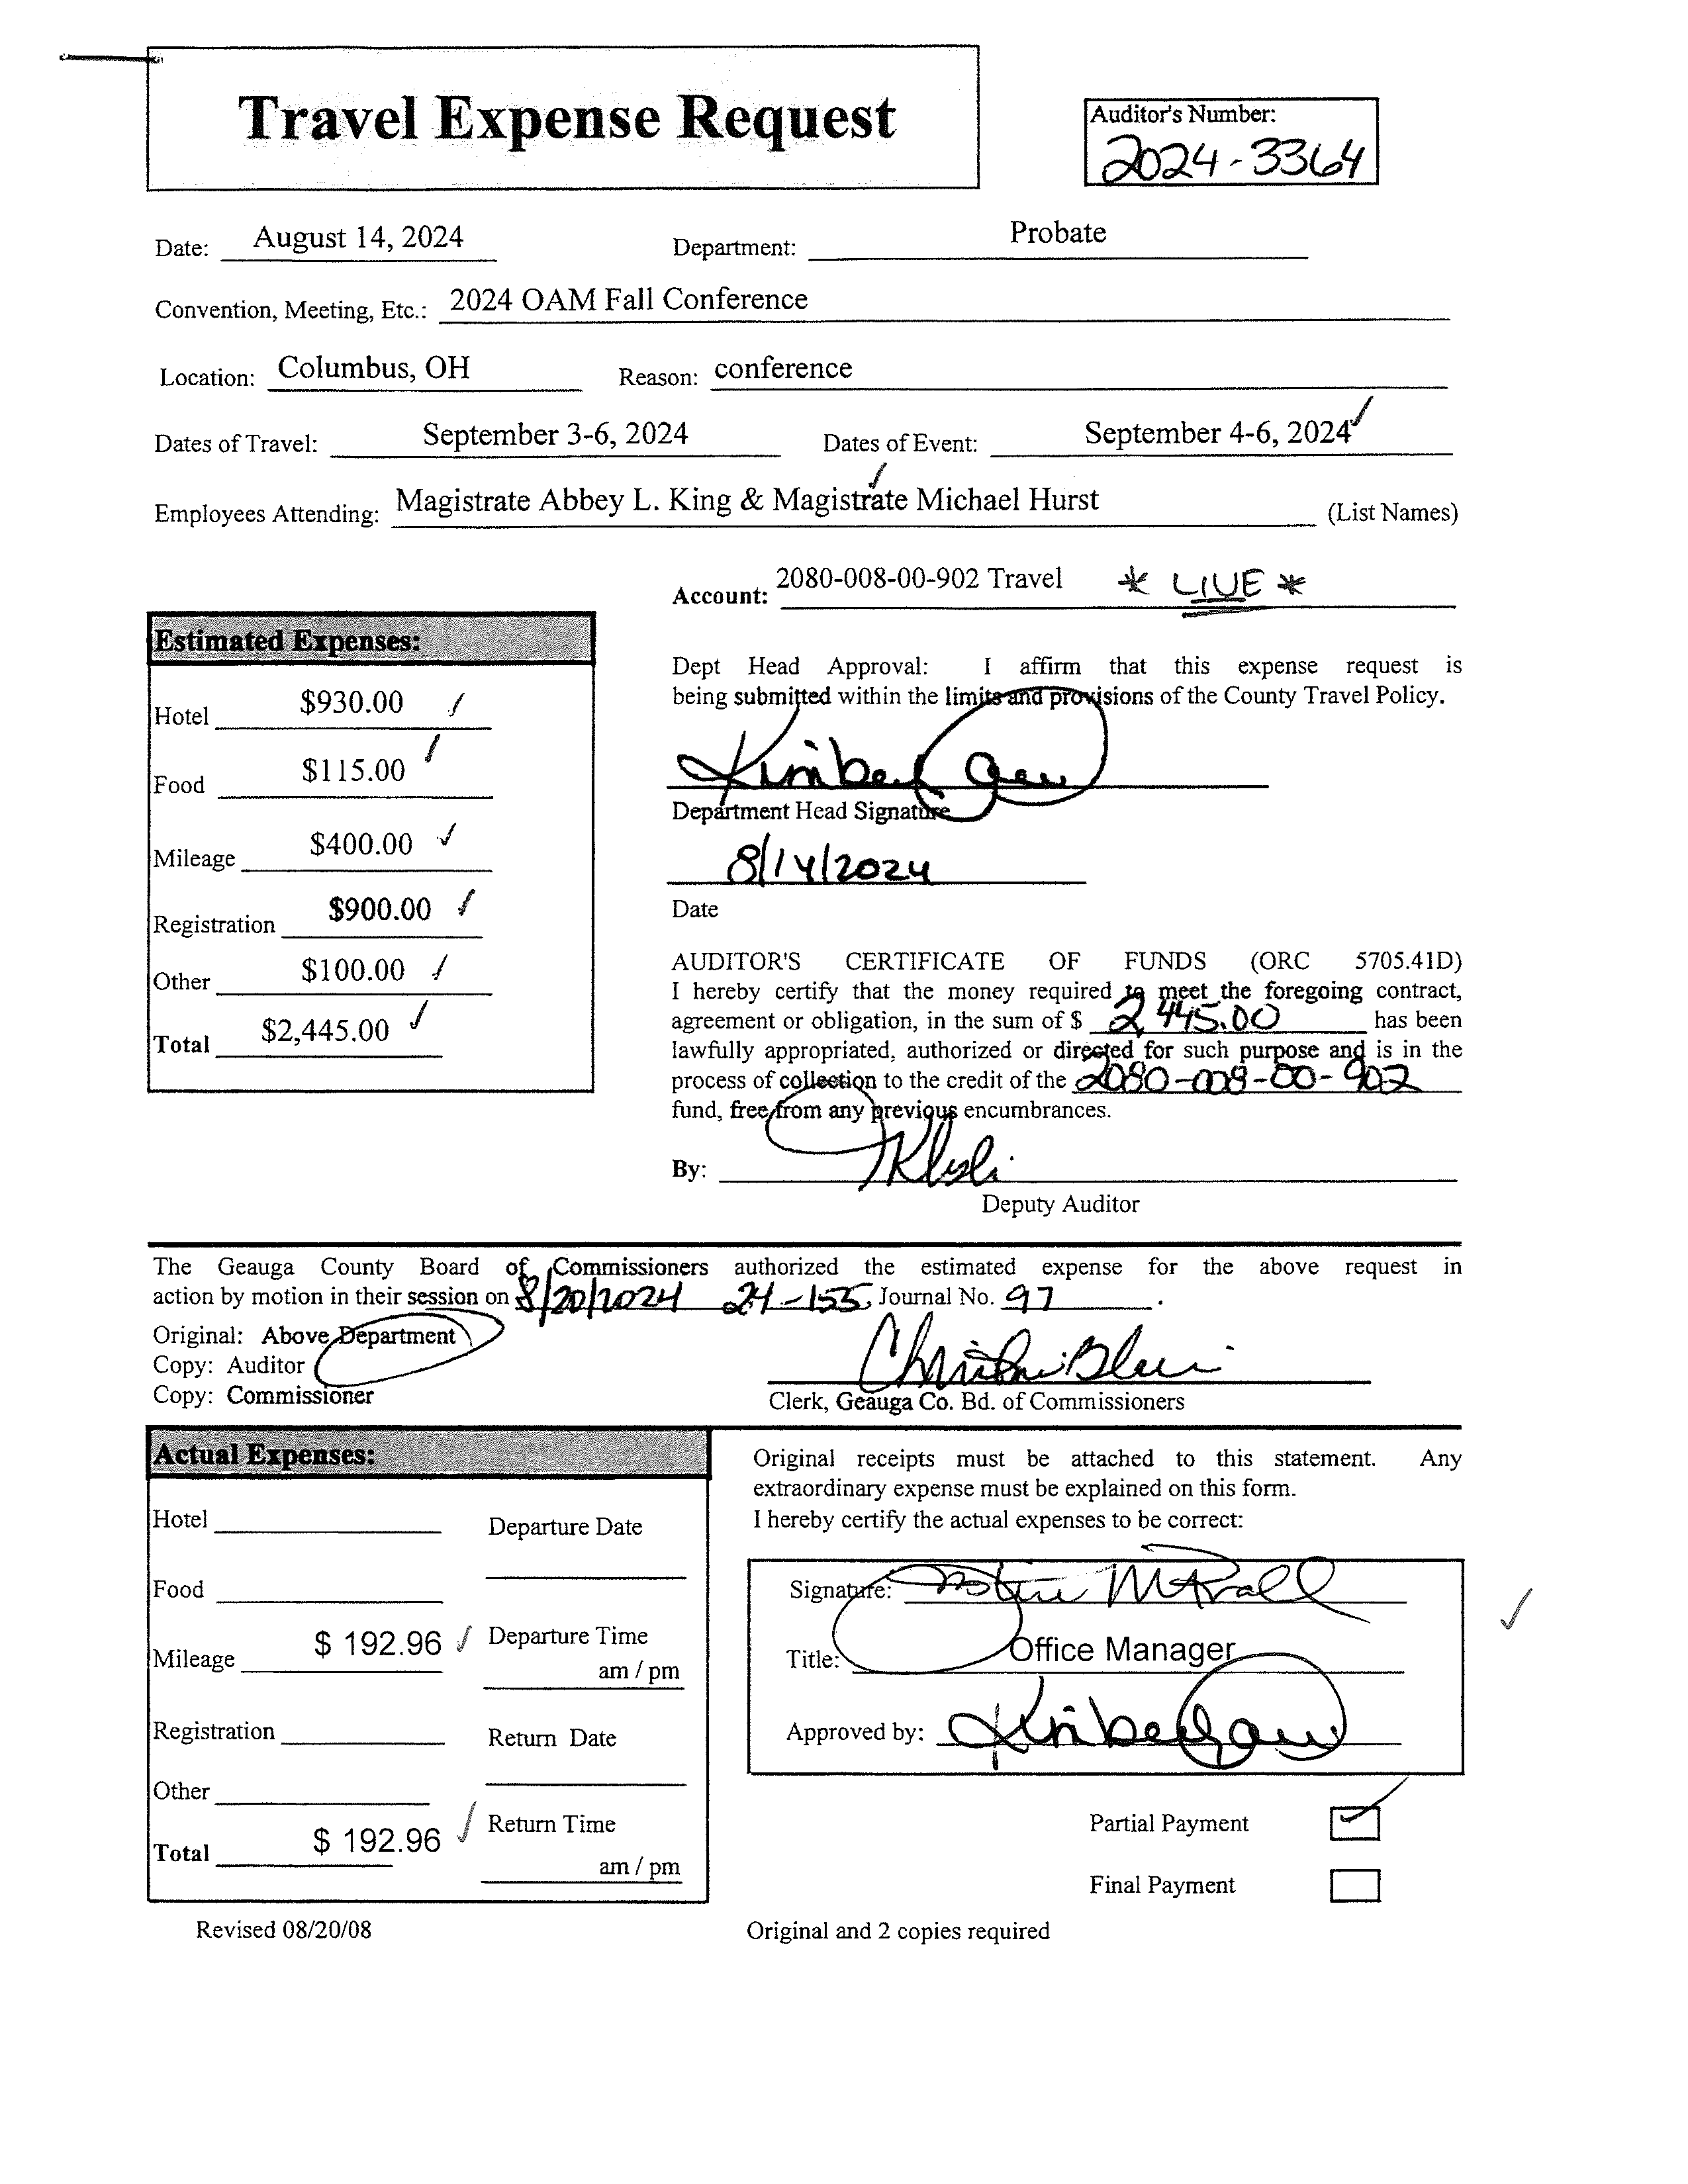 Travel Expense Request
Auditor's Number:
2024-3364
Date: August 14, 2024 Department: Probate
Convention, Meeting, Etc.: 2024 OAM Fall Conference
Location: Columbus, OH Reason: conference
Dates of Travel: September 3-6, 2024 Dates of Event: September 4-6, 2024
Employees Attending: Magistrate Abbey L. King & Magistrate Michael Hurst (List Names)
Account: 2080-008-00-902 Travel * LIVE *
Estimated Expenses:
Hotel $930.00
Food $115.00
Mileage $400.00
Registration $900.00
Other $100.00
Total $2,445.00
Dept Head Approval: I affirm that this expense request is
being submitted within the limits and provisions of the County Travel Policy.
Department Head Signature
8/14/2024
Date
AUDITOR'S CERTIFICATE OF FUNDS (ORC 5705.41D)
I hereby certify that the money required to meet the foregoing contract,
agreement or obligation, in the sum of $ 2,445.00 has been
lawfully appropriated, authorized or directed for such purpose and is in the
process of collection to the credit of the 2080-008-00-902
fund, free from any previous encumbrances.
By:
Deputy Auditor
The Geauga County Board of Commissioners authorized the estimated expense for the above request in
action by motion in their session on 8/20/2024 24-155, Journal No. 97.
Original: Above Department
Copy: Auditor
Copy: Commissioner
Clerk, Geauga Co. Bd. of Commissioners
Actual Expenses:
Hotel
Food
Mileage $ 192.96
Registration
Other
Total $ 192.96
Departure Date
Departure Time
am / pm
Return Date
Return Time
am / pm
Original receipts must be attached to this statement. Any
extraordinary expense must be explained on this form.
I hereby certify the actual expenses to be correct:
Signature:
Title: Office Manager
Approved by:
Partial Payment
Final Payment
Revised 08/20/08
Original and 2 copies required